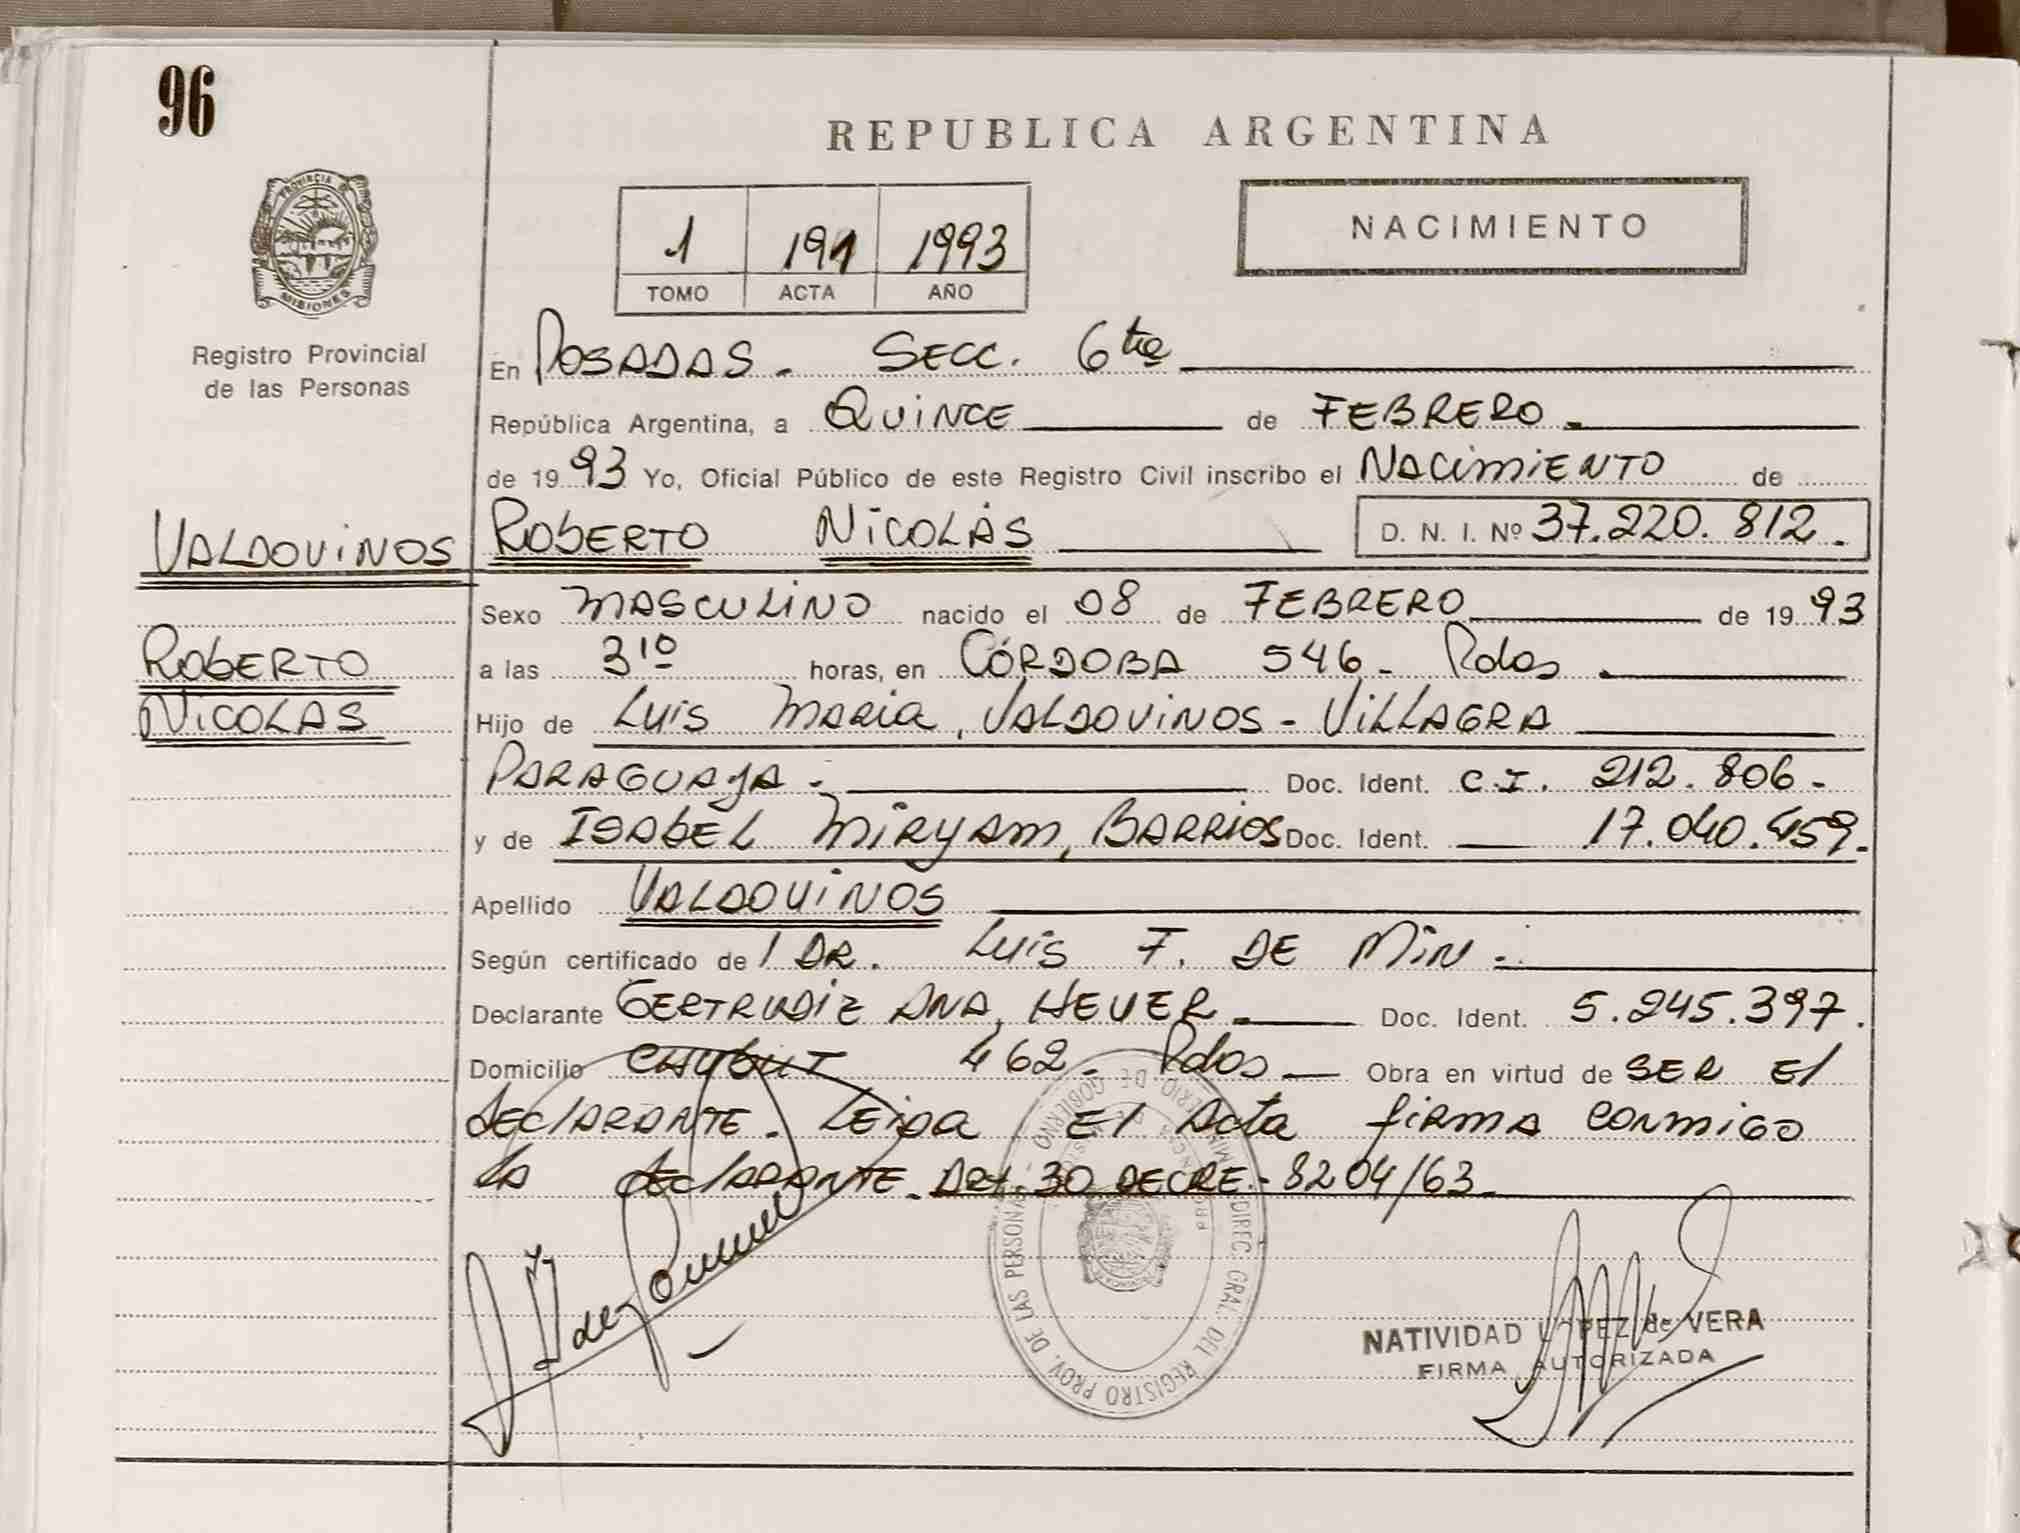 96
REPUBLICA ARGENTINA
PROVINCIA DE
MISIONES
Registro Provincial
de las Personas
1 191 1993
TOMO ACTA AÑO
NACIMIENTO
En POSADAS. SECC. 6ta
República Argentina, a QUINCE de FEBRERO.
de 1993 Yo, Oficial Público de este Registro Civil inscribo el NACIMIENTO de
VALDOVINOS ROBERTO NICOLÁS D. N. I. Nº 37.220.812.
Sexo MASCULINO nacido el 08 de FEBRERO de 1993
ROBERTO
a las 3 10 horas, en CÓRDOBA 546. Pdas.
NICOLAS
Hijo de LUIS MARIA, VALDOVINOS - VILLAGRA
PARAGUAYA. Doc. Ident. C.I. 212.806-
y de ISABEL MIRYAM, BARRIOS Doc. Ident. 17.040.459.
Apellido VALDOVINOS
Según certificado de l DR. LUIS F. DE MIN.
Declarante GERTRUDIZ ANA, HEUER. Doc. Ident. 5.245.397.
Domicilio CHUBUT 462. Pdas Obra en virtud de SER El
DEClARANTE. LEIDA El Acta fiRMA CONMIGO
LA DEClARANTE. ARt. 30 DECRE.- 8204/63.
DIREC. GRAL. DEL REGISTRO PROV. DE LAS PERSONAS
MINISTERIO DE GOBIERNO
NATIVIDAD LOPEZ de VERA
FIRMA AUTORIZADA